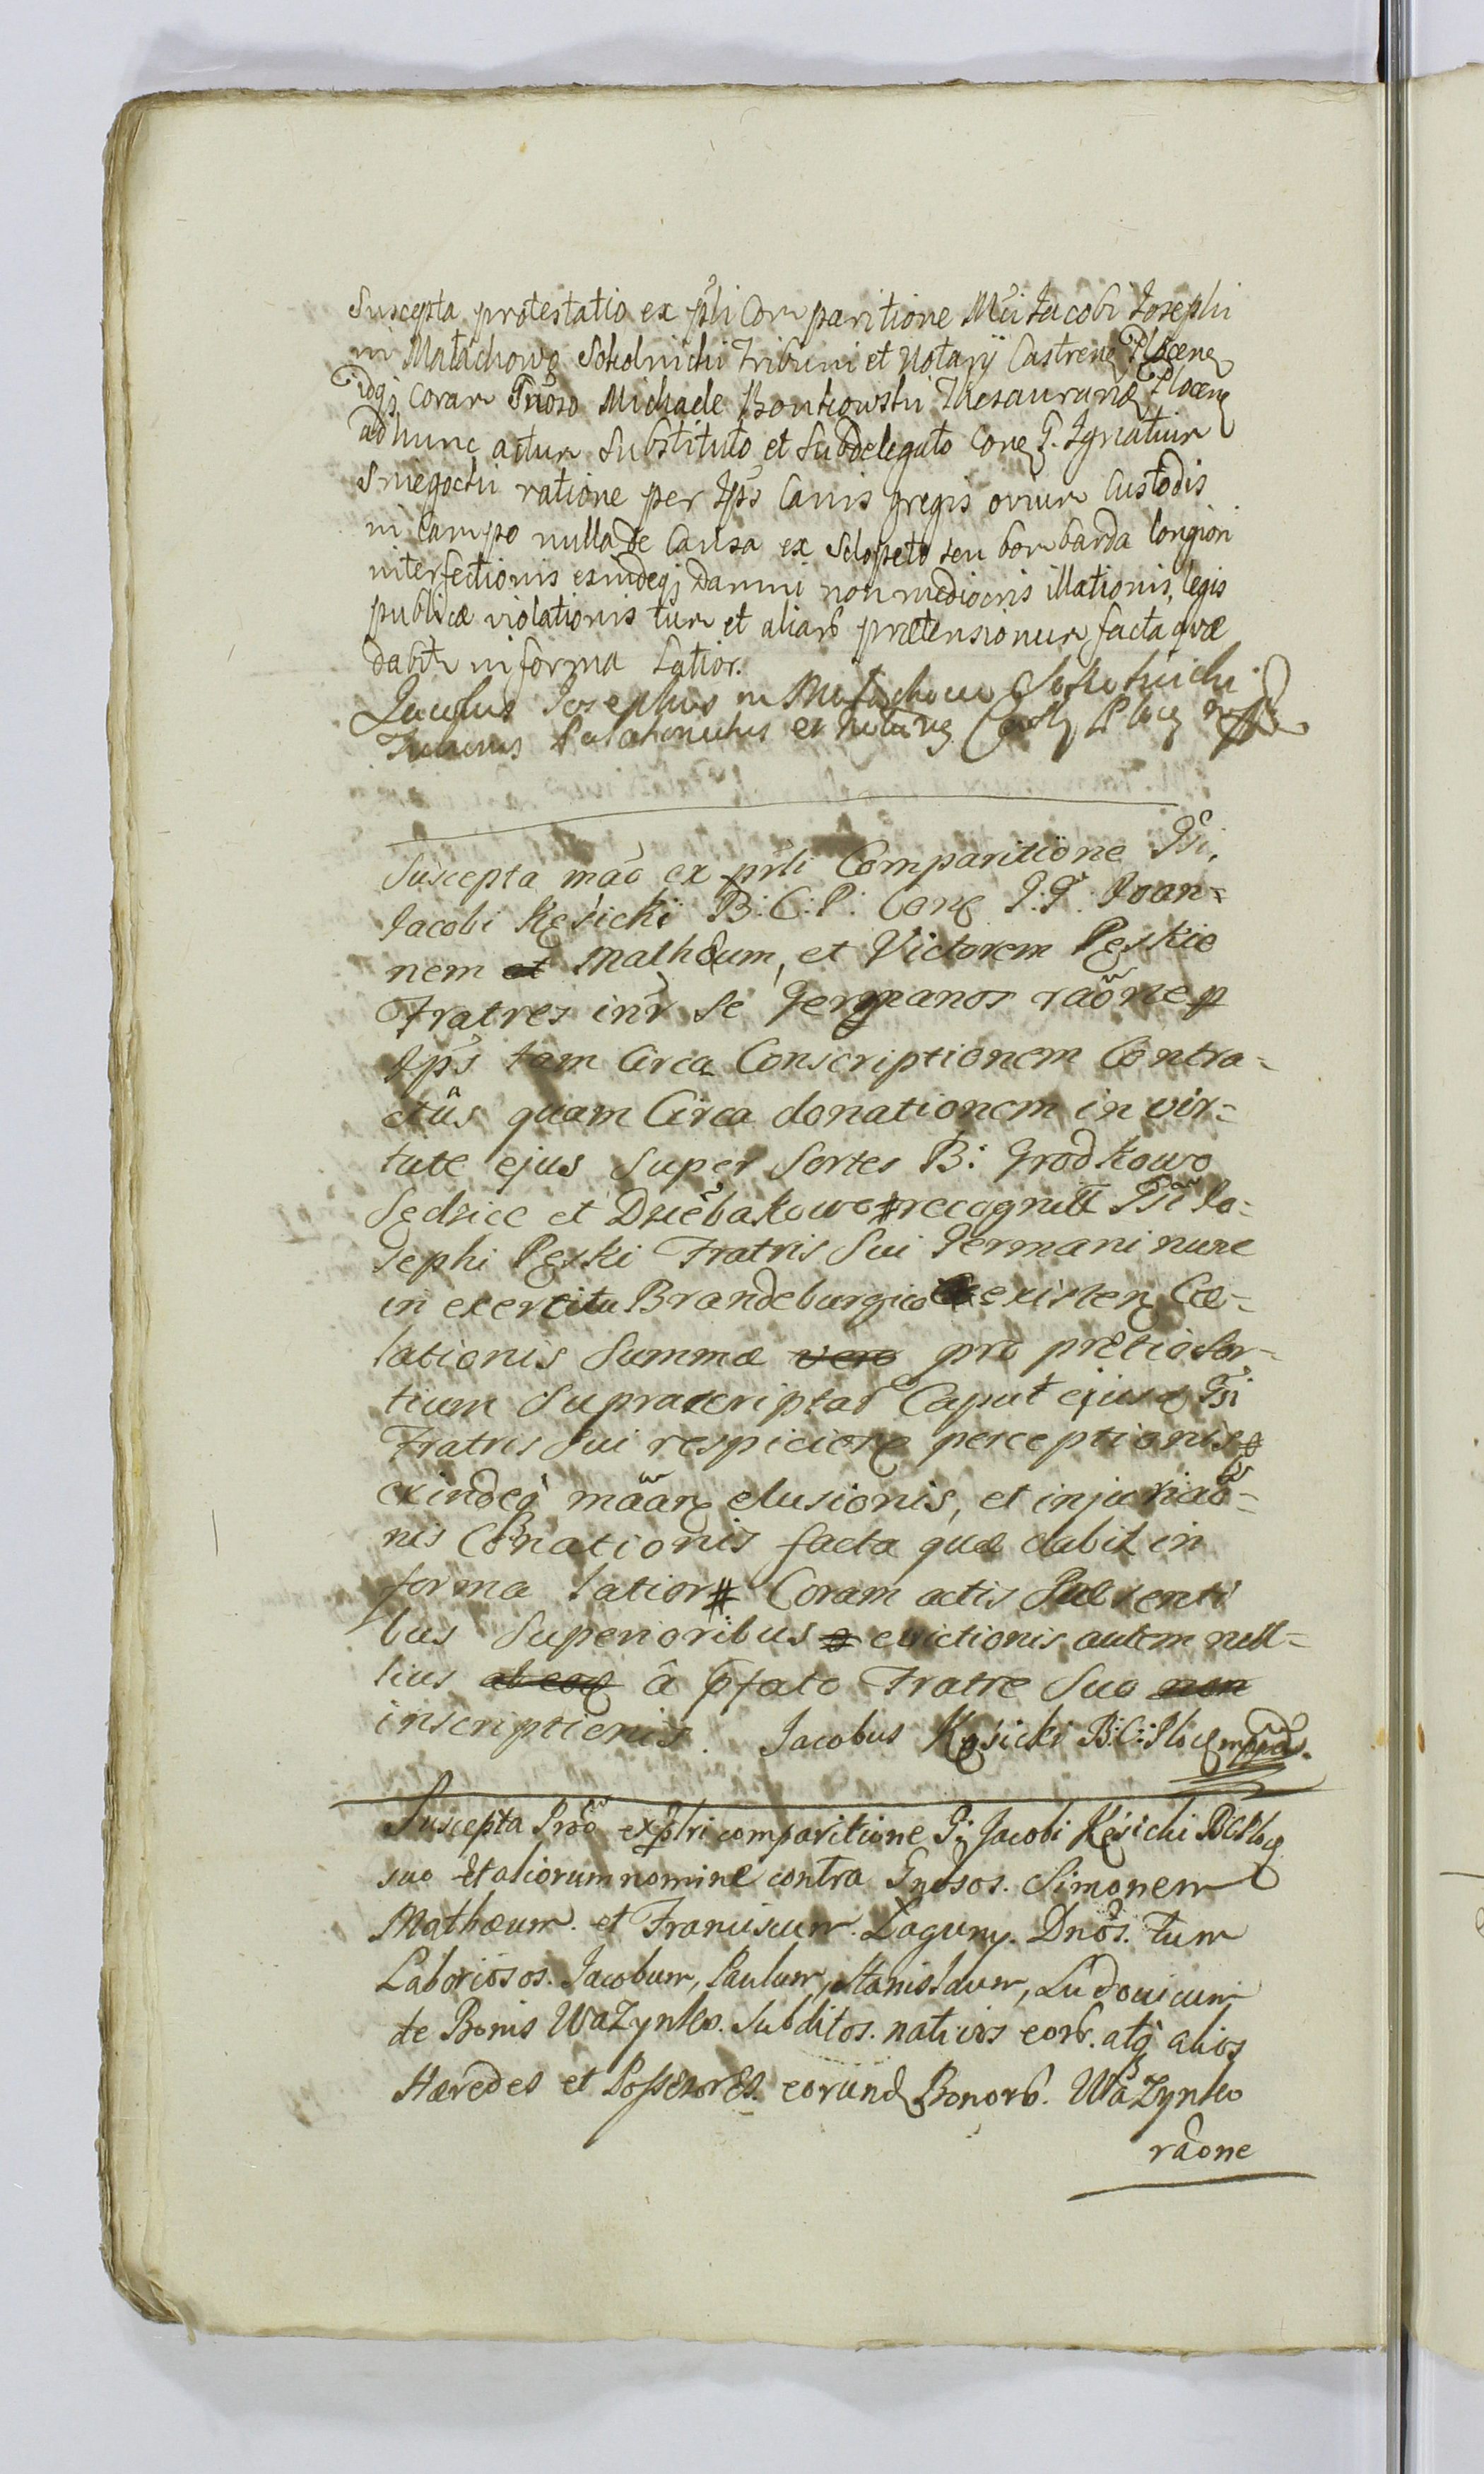 Suscepta protestatio ex pñli Comparitione Mci Jacobi Josephi
in Małachowo Sokolnicki Tribuni et Notarÿ Castreñ Płoceñ
idq; Coram Gnoso Michaele Bonkowski Thesaurario Płoceñ
ad hunc actum Substituto et Subdelegato Coñ G. Ignatium
Smiegocki ratione per Ips̃ Canis gregis ovium Custodis
in Campo nulla de Causa ex Sclopeto seu bombarda longiori
interfectionis exindeq; damni non mediocris illationis, legis
publicæ violationis tum et aliarũ prætensionum facta quæ
dabitr in forma latior.
Jacobus Josephus in Małachowo Sokolnicki
Tribunus Palatinatus et Notariꝰ Castr Płoc mpp
Suscepta mão ex pr̃li Comparitione Gsi.
Jacobi Kęsicki B: C: P: Cone G: G: Joan=
nem et Mathæum, et Victorem Pęskie
Fratres int̃r Se Germanos raõne p
Ips̃ tam Circa Conscriptionem Contra=
ctûs quam Circa donationem in vir=
tute ejus Super Sortes B: Grodkowo
Sędzice et Dziebakowo # recognitt Gsi Jo=
sephi Pęski Fratris Sui Germani nunc
in exercitu Brandeburgico existeñ Cæ=
lationis Summæ vero pro pretio Sor=
tium Suprascriptar̃ Caput ejusd Gsi
Fratris Sui respicieñ perceptionis #
exindeq̃ mãar elusionis, et injuriaõ=
nis Cõnationis facta quæ dabit in
forma latior # Coram actis Præsenti
bus Superioribus evictionis autem null=
lius ab eod â p̃fato Fratre Suo non
inscriptionis. Jacobus Kęsicki B: C: Płoc mpp
Suscepta Prõo ex pr̃li comparitione Gi Jacobi Kęsicki BCPłoc
suo et aliorum nomine contra Gnosos. Simonem
Mathæum. et Franciscum. Łaguny. Dños. tum
Laboriosos. Jacobum, Paulum, Stanislaum, Ludovicum
de Bonis Wazynko. Subditos. nativos eorũ. atq̃ alios
Hæredes et Possessores. eorund Bonorũ. Wazynko
rãone